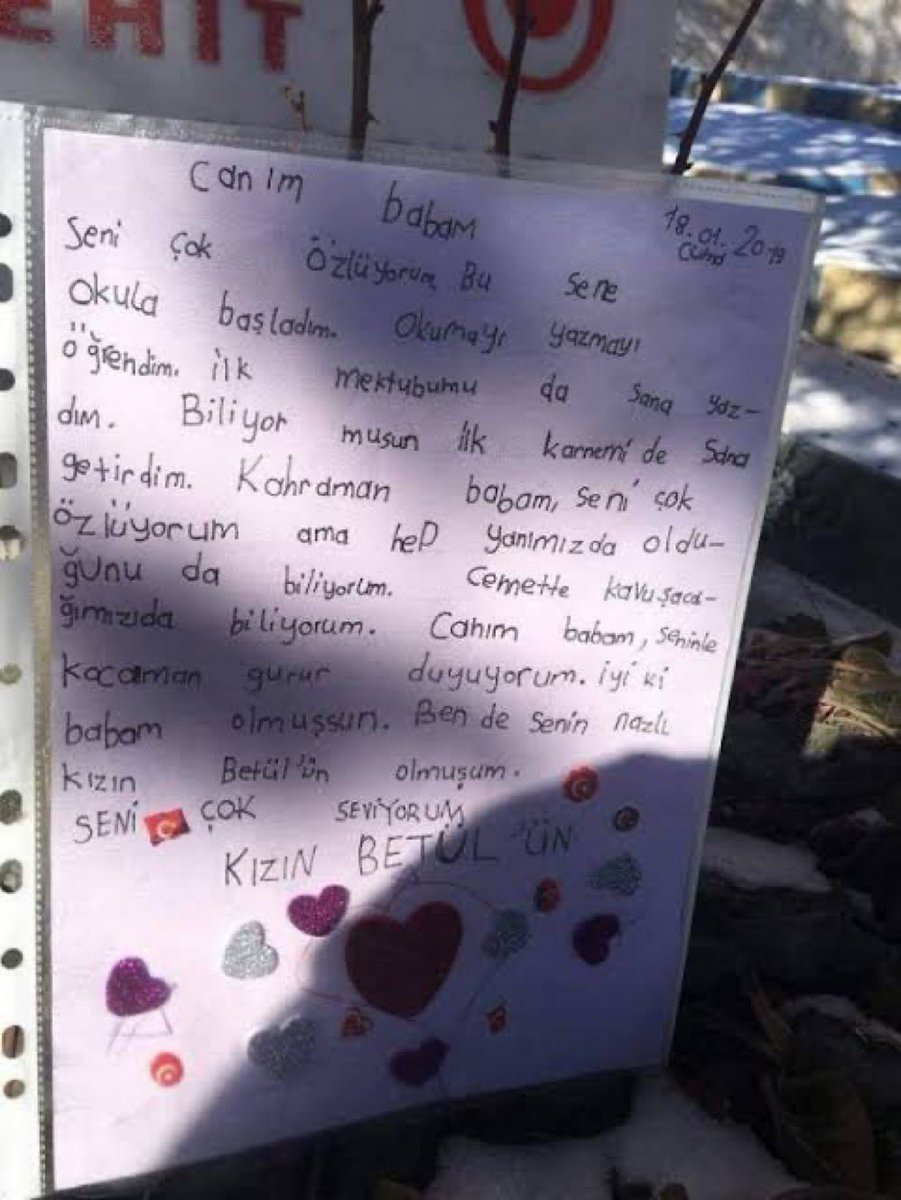 EHİT
Canım babam
18.01.2019
Cuma
Seni çok özlüyorum Bu sene
okula başladım. Okumayı yazmayı
öğrendim. ilk mektubumu da sana yaz-
dım. Biliyor musun ilk karnemi de sana
getirdim. Kahraman babam, seni çok
özlüyorum ama hep yanımızda oldu-
ğunu da biliyorum. Cemette kavuşaca-
ğımızıda biliyorum. Canım babam, seninle
kocaman gurur duyuyorum. iyi ki
babam olmuşsun. Ben de senin nazlı
kızın Betül'ün olmuşum.
SENİ ÇOK SEVİYORUM
KIZIN BETÜL'ÜN